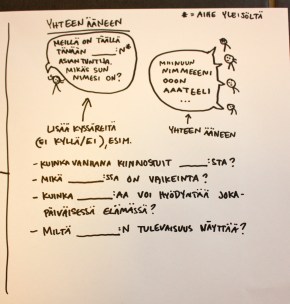 YHTEEN ÄÄNEEN
* = AIHE YLEISÖLTÄ
MEILLÄ ON TÄÄLLÄ
TÄNÄÄN ____:N*
ASIANTUNTIJA,
MIKÄS SUN
NIMESI ON?
MIINUUN
NIMMEEENI
OOON
AAATEELI
...
LISÄÄ KYSSÄREITÄ
(EI KYLLÄ/EI), ESIM.
YHTEEN ÄÄNEEN
- KUINKA VANHANA KIINNOSTUIT ____:STA?
- MIKÄ ____:SSA ON VAIKEINTA?
- KUINKA ____:AA VOI HYÖDYNTÄÄ JOKA-
PÄIVÄISESSÄ ELÄMÄSSÄ?
- MILTÄ ____:N TULEVAISUUS NÄYTTÄÄ?